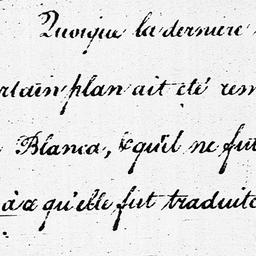 Quoique la derniere
rtain plan ait été rem
Blanca, & qu'il ne fut
à ce qu'elle fut traduite